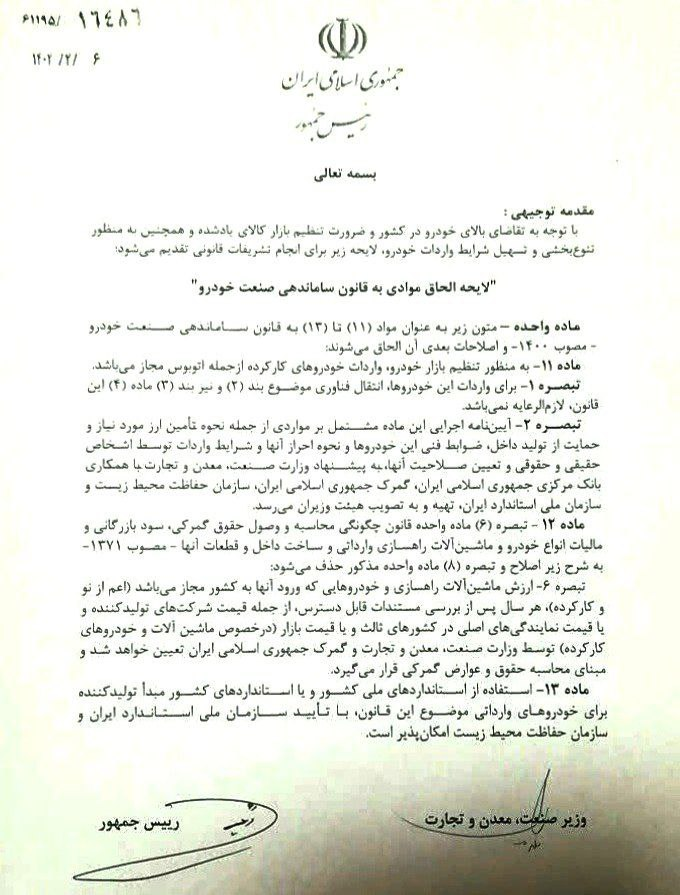 ۶۱۱۹۵/ ۱۶۴۸۶
۱۴۰۲ /۲/ ۶
جمهوری اسلامی ایران
رئیس جمهور
بسمه تعالی
مقدمه توجیهی :
با توجه به تقاضای بالای خودرو در کشور و ضرورت تنظیم بازار کالای یادشده و همچنین به منظور
تنوع‌بخشی و تسهیل شرایط واردات خودرو، لایحه زیر برای انجام تشریفات قانونی تقدیم می‌شود:
"لایحه الحاق موادی به قانون ساماندهی صنعت خودرو"
ماده واحده – متون زیر به عنوان مواد (۱۱) تا (۱۳) به قانون ساماندهی صنعت خودرو
- مصوب ۱۴۰۰- و اصلاحات بعدی آن الحاق می‌شوند:
ماده ۱۱- به منظور تنظیم بازار خودرو، واردات خودروهای کارکرده ازجمله اتوبوس مجاز می‌باشد.
تبصره ۱- برای واردات این خودروها، انتقال فناوری موضوع بند (۲) و نیز بند (۳) ماده (۴) این
قانون، لازم‌الرعایه نمی‌باشد.
تبصره ۲- آیین‌نامه اجرایی این ماده مشتمل بر مواردی از جمله نحوه تأمین ارز مورد نیاز و
حمایت از تولید داخل، ضوابط فنی این خودروها و نحوه احراز آنها و شرایط واردات توسط اشخاص
حقیقی و حقوقی و تعیین صلاحیت آنها، به پیشنهاد وزارت صنعت، معدن و تجارت با همکاری
بانک مرکزی جمهوری اسلامی ایران، گمرک جمهوری اسلامی ایران، سازمان حفاظت محیط زیست و
سازمان ملی استاندارد ایران، تهیه و به تصویب هیئت وزیران می‌رسد.
ماده ۱۲- تبصره (۶) ماده واحده قانون چگونگی محاسبه و وصول حقوق گمرکی، سود بازرگانی و
مالیات انواع خودرو و ماشین‌آلات راهسازی وارداتی و ساخت داخل و قطعات آنها - مصوب ۱۳۷۱-
به شرح زیر اصلاح و تبصره (۸) ماده واحده مذکور حذف می‌شود:
تبصره ۶- ارزش ماشین‌آلات راهسازی و خودروهایی که ورود آنها به کشور مجاز می‌باشد (اعم از نو
و کارکرده)، هر سال پس از بررسی مستندات قابل دسترس، از جمله قیمت شرکت‌های تولیدکننده و
یا قیمت نمایندگی‌های اصلی در کشورهای ثالث و یا قیمت بازار (درخصوص ماشین آلات و خودروهای
کارکرده) توسط وزارت صنعت، معدن و تجارت و گمرک جمهوری اسلامی ایران تعیین خواهد شد و
مبنای محاسبه حقوق و عوارض گمرکی قرار می‌گیرد.
ماده ۱۳- استفاده از استانداردهای ملی کشور و یا استانداردهای کشور مبدأ تولیدکننده
برای خودروهای وارداتی موضوع این قانون، با تأیید سازمان ملی استاندارد ایران و
سازمان حفاظت محیط زیست امکان‌پذیر است.
وزیر صنعت، معدن و تجارت
رییس جمهور